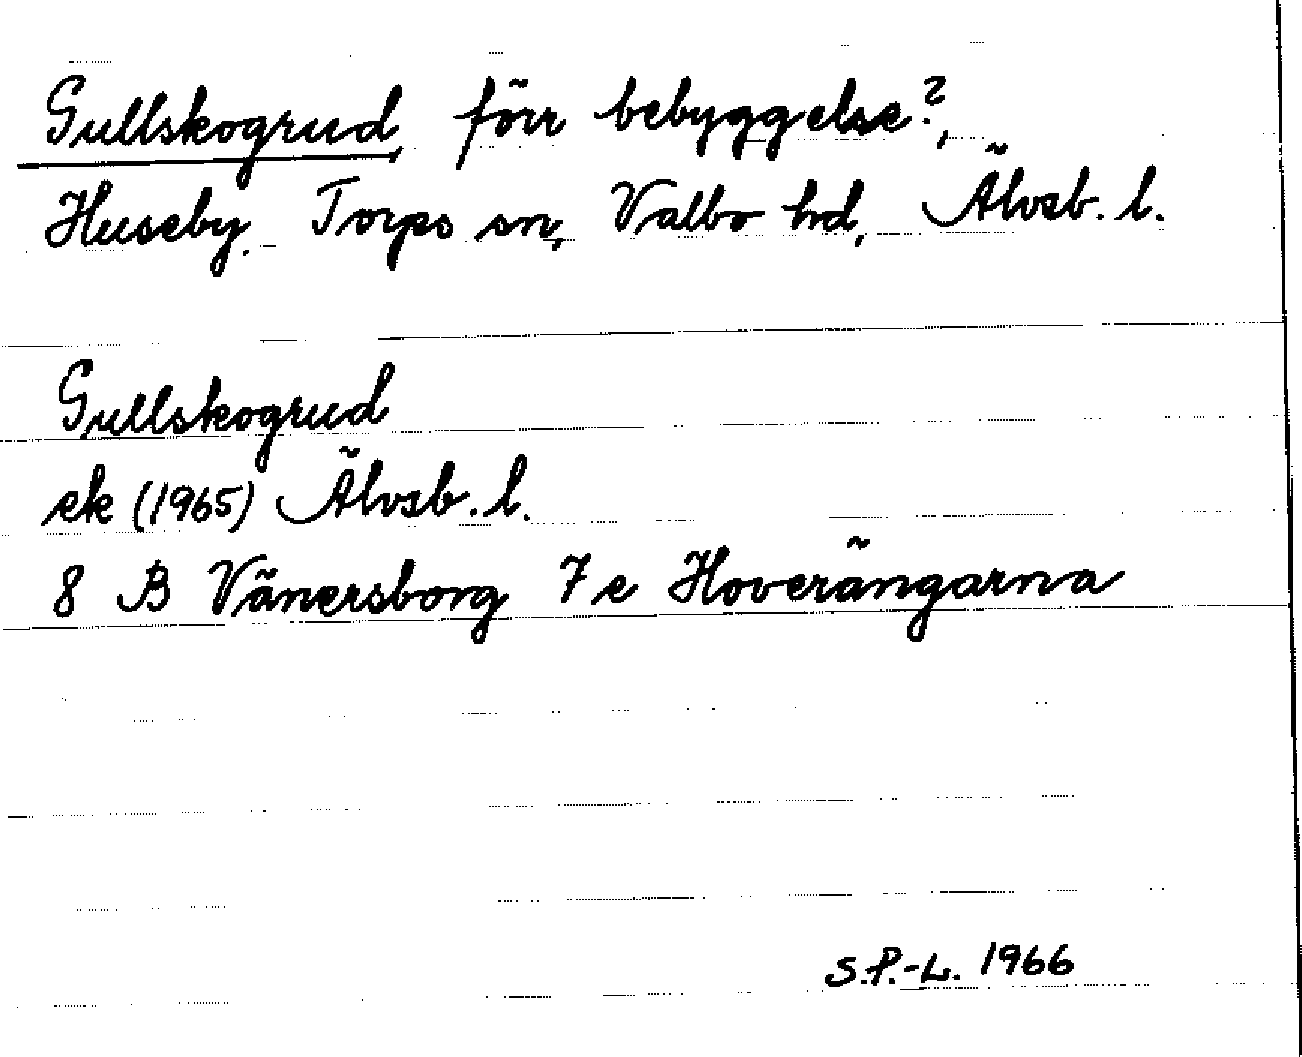 Gullskogrud, förr bebyggelse?,
Huseby, Torps sn, Valbo hd, Älvsb. l.
Gullskogrud
ek (1965) Älvsb. l.
8 B Vänersborg 7 e Hoverängarna
S.P.-L. 1966